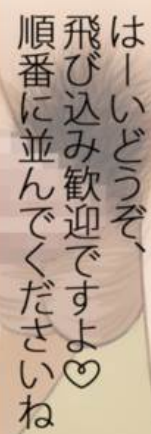 はーいどうぞ、
飛び込み歓迎ですよ♡
順番に並んでくださいね